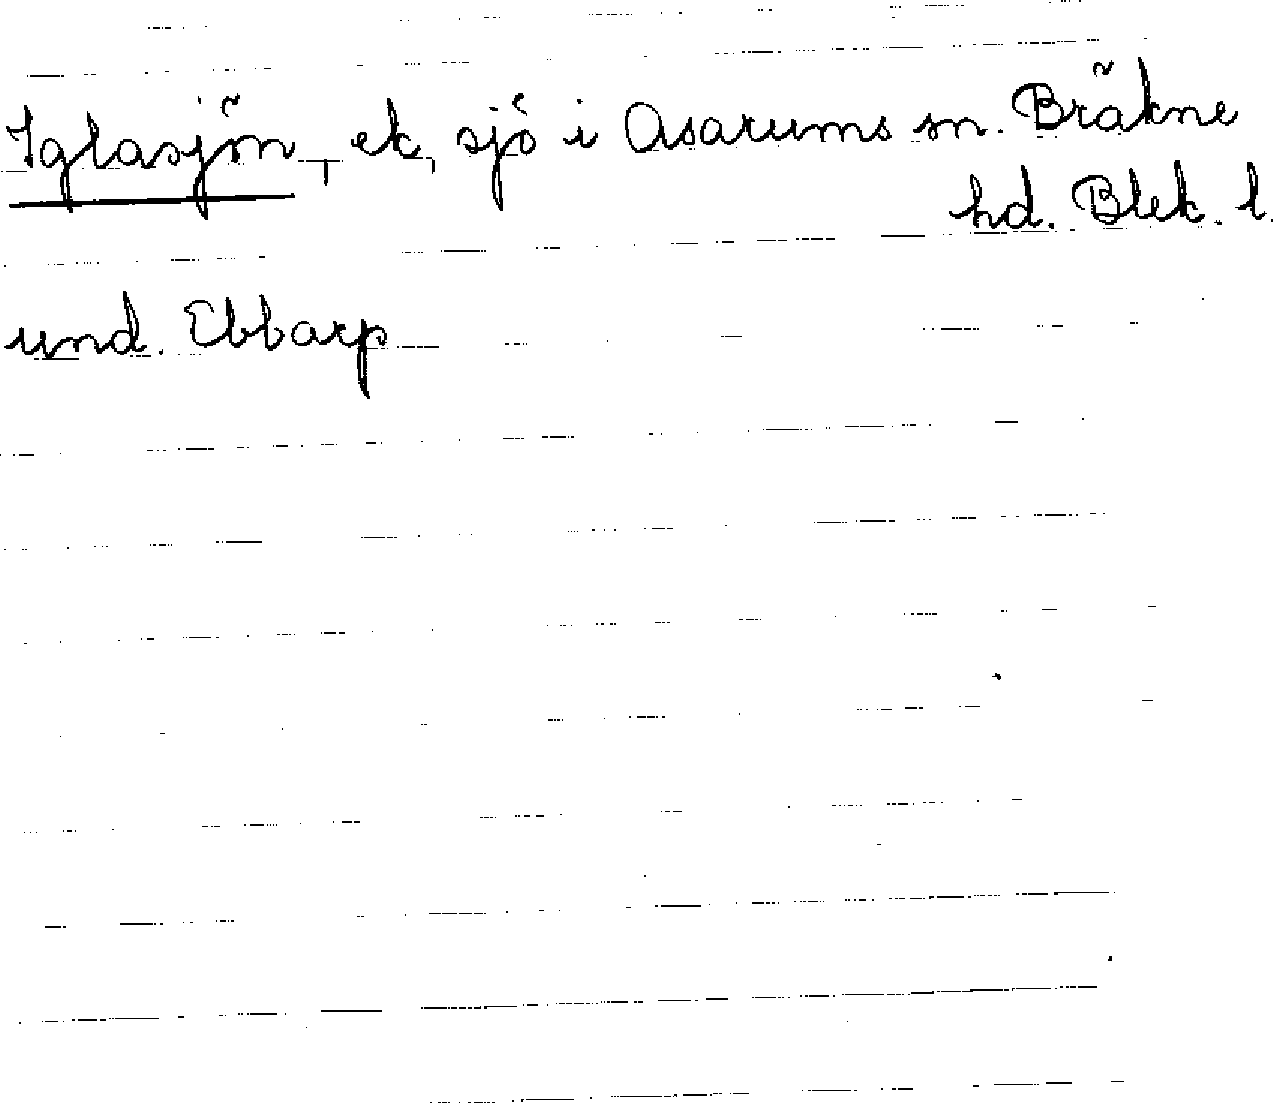 Iglasjön, ek, sjö i Asarums sn. Bräkne
hd. Blek. l.
und. Ebbarp